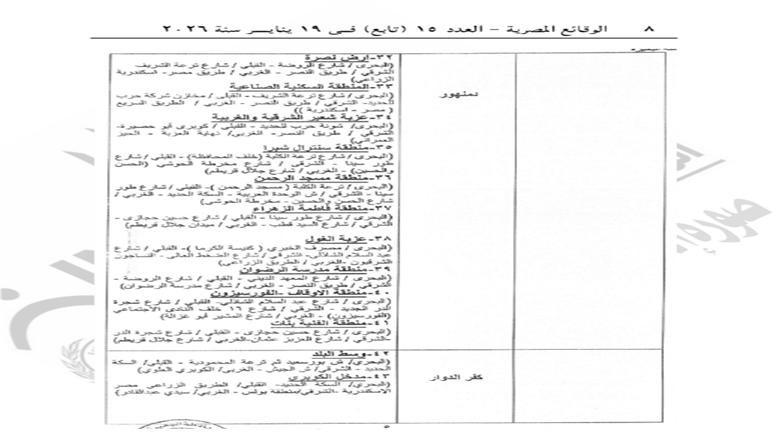 ٨ الوقائع المصرية – العدد ١٥ (تابع) فى ١٩ يناير سنة ٢٠٢٦
٣٢-ارض نصرة
(البحرى/ شارع الروضة - القبلي / شارع ترعة الشريف
الشرقي / طريق النصر - الغربي / طريق مصر- اسكندرية
الزراعي)
٣٣-المنطقة السكنية الصناعية
دمنهور
(البحرى / شارع ترعة الشريف - القبلى / مخازن شركة حرب
للحديد- الشرقي / طريق النصر - الغربي / الطريق السريع
( مصر - اسكندرية ))
٣٤-عزبة شعير الشرقية والغربية
(البحرى/ شونة حرب للحديد - القبلي / كوبرى ابو حصيرة-
الشرقي / طريق النصر- الغربي/ نهاية العزبة - الحيز
العمراني)
٣٥-منطقة سنترال شبرا
(البحرى/ شارع ترعة الكتبة (خلف المحافظة)- القبلي / شارع
طور سينا - الشرقي / شارع مخرطة الحوشي (الحسن
والحسين) - الغربي / شارع جلال قريطم)
٣٦-منطقة مسجد الرحمن
(البحرى / ترعة الكتبة ( مسجد الرحمن )- القبلي / شارع طور
سينا - الشرقي / ش الوحدة العربية - السكة الحديد - الغربي /
شارع الحسن والحسين - مخرطة الحوشي)
٣٧-منطقة فاطمة الزهراء
(البحرى / شارع طور سينا - القبلي / شارع حسين حجازى -
الشرقي / شارع السيد قطب - الغربي / ميدان جلال قريطم)
٣٨-عزبة الغول
(البحرى / مصرف الخيري ( كنيسة الكرما )- القبلي / شارع
عبد السلام الشاذلي- الشرقي / شارع الضغط العالى -
الشرقيون -الغربي / الطريق الزراعي)
٣٩-منطقة مدرسة الرضوان
(البحرى / شارع المعهد الديني - القبلي / شارع الروضة -
الشرقي / طريق النصر - الغربي / شارع مدرسة الرضوان)
٤٠-منطقة الاوقاف -الفورسيزون
(البحرى / شارع عبد السلام الشاذلي- القبلي / شارع شجرة
الدر الجديد - الشرقي / شارع ١٦ خلف النادى الاجتماعي
(الفورسيزون) - الغربي / شارع المشير ابو غزالة)
٤١-منطقة الفنية بنات
(البحرى / شارع حسين حجازى - القبلي / شارع شجرة الدر
الشرقي / شارع العزيز عثمان-الغربي / شارع جلال قريطم)
٤٢-وسط البلد
(البحرى/ ش بورسعيد ثم ترعة المحمودية - القبلي/ السكة
الحديد - الشرقي/ ش الجيش - الغربي/ الكوبري العلوي)
كفر الدوار
٤٣-مدخل الكوبري
(البحرى/ السكة الحديد- القبلي/ الطريق الزراعى مصر
الاسكندرية -الشرقي/منطقة بولس - الغربي/ سيدي عبدالقادر)